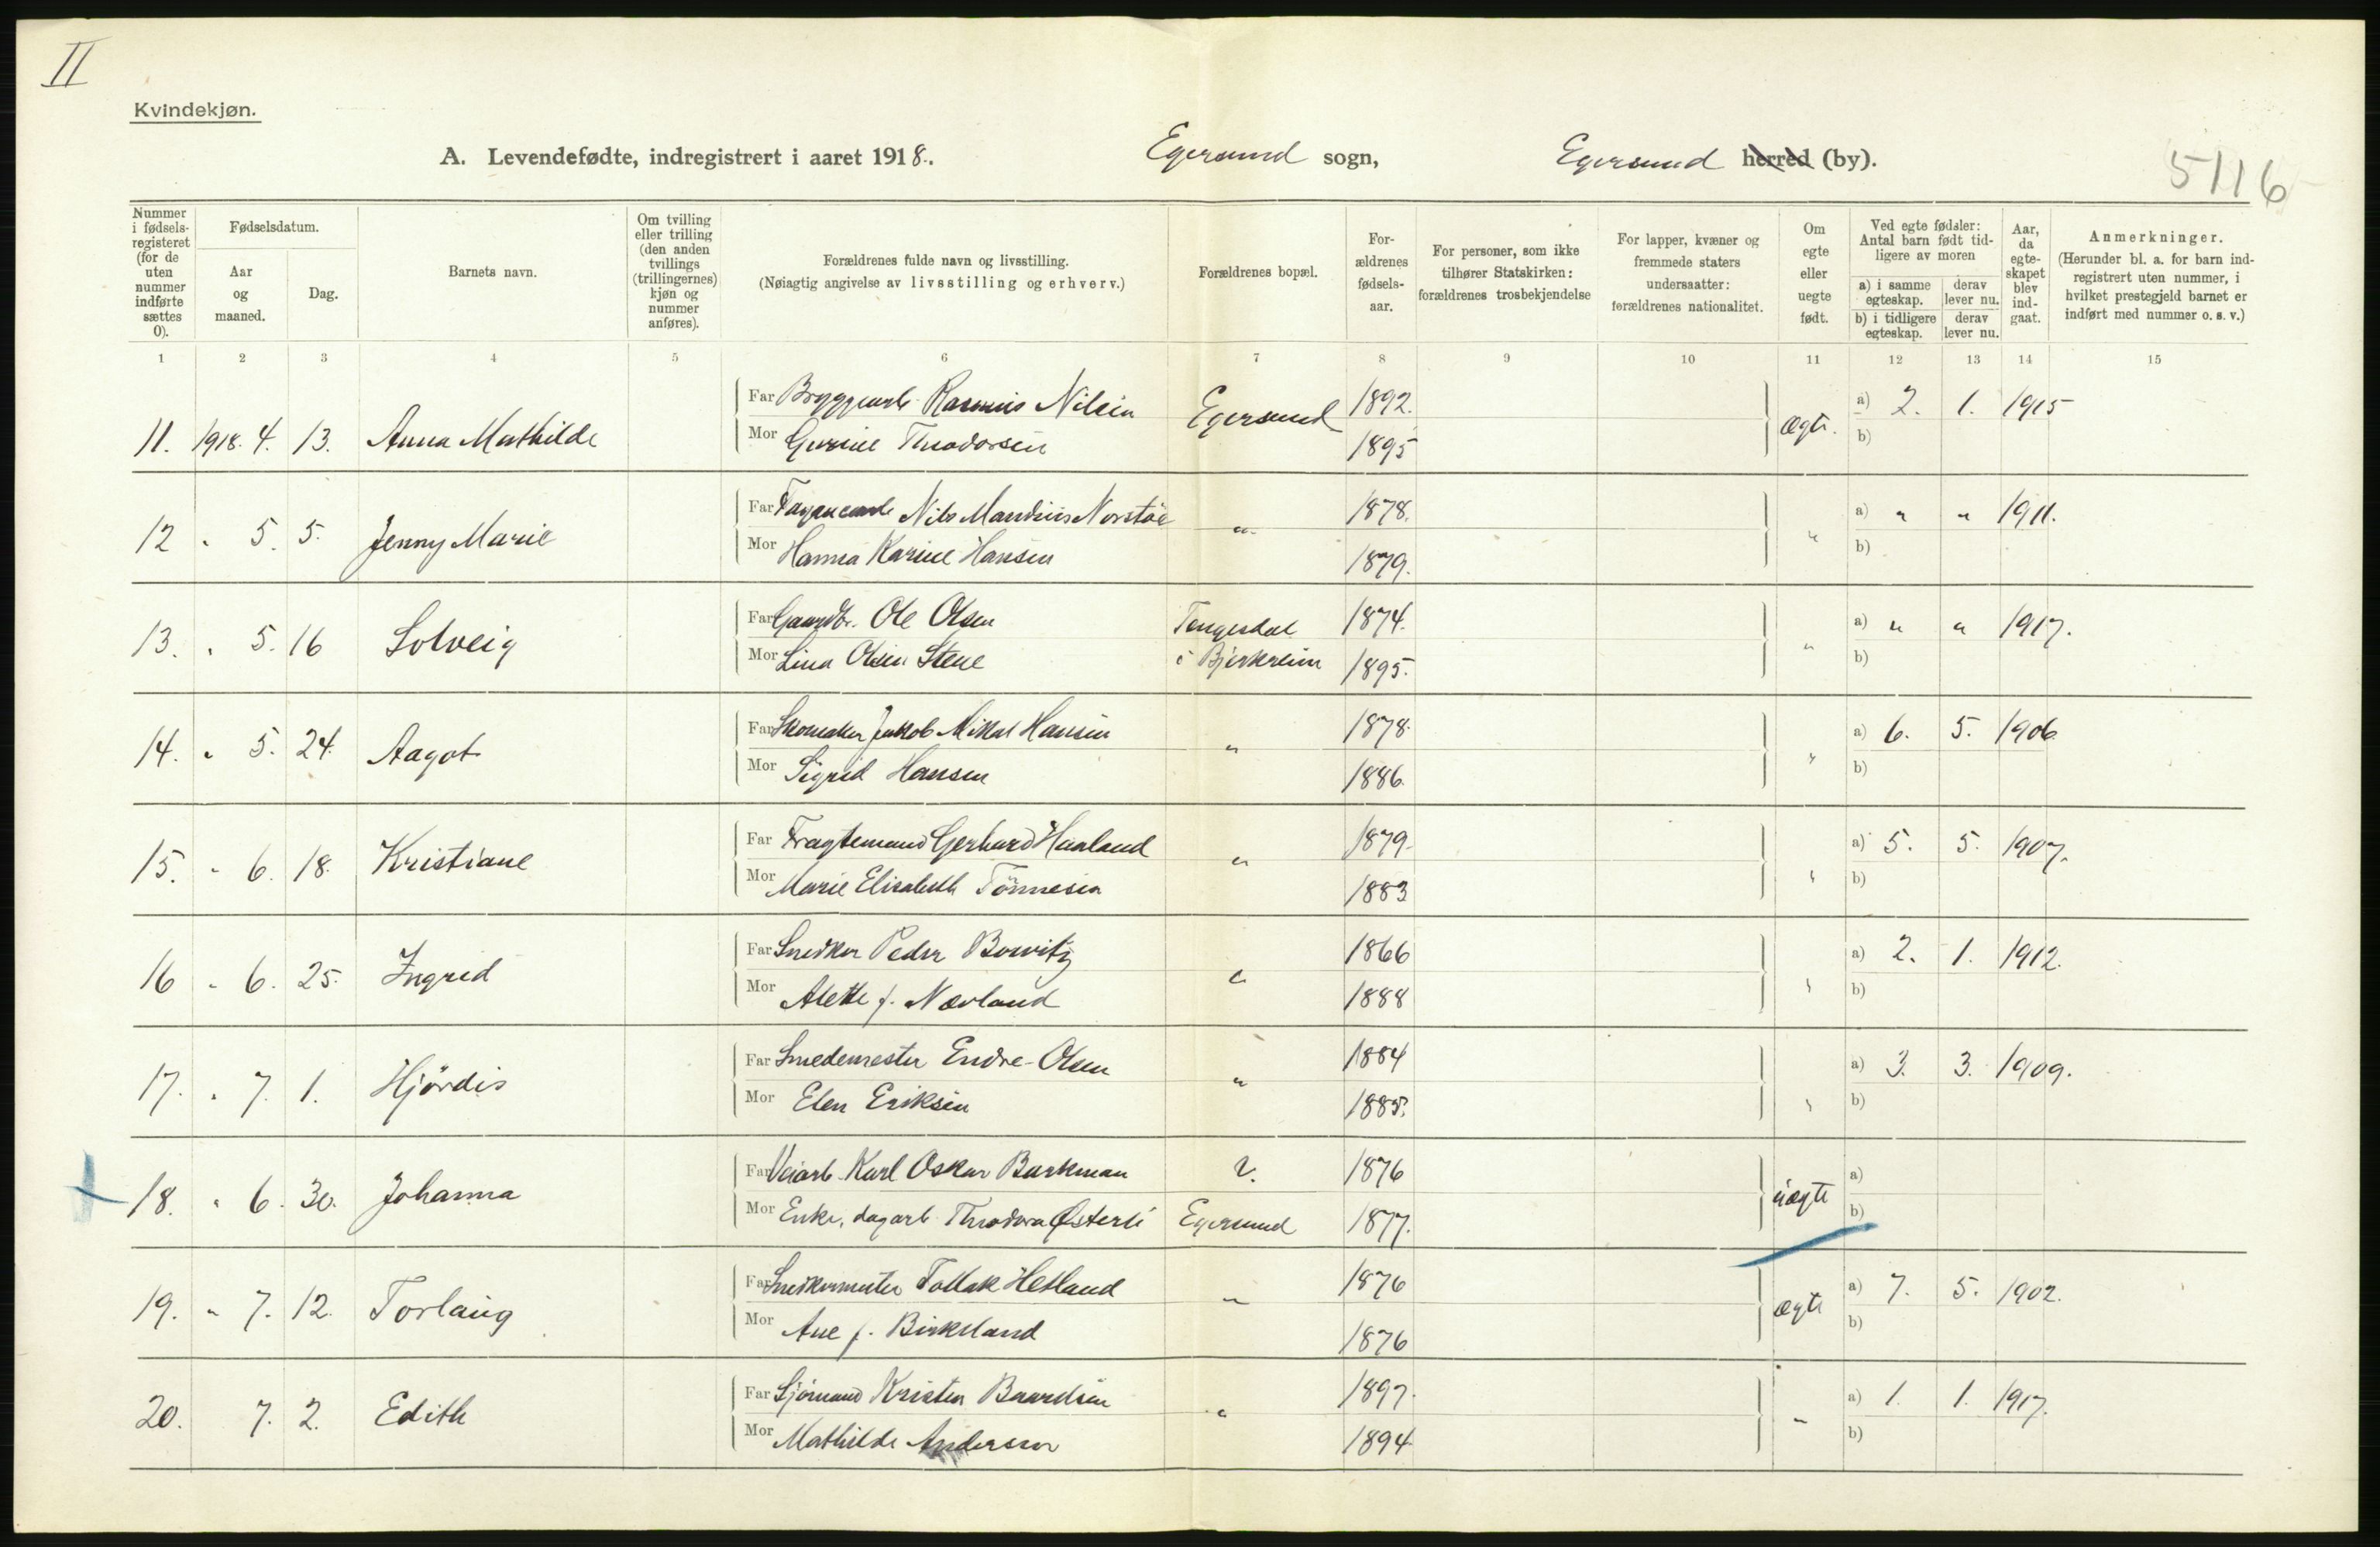 II
Kvindekjøn.
A. Levendefødte, indregistrert i aaret 1918. Egersund sogn, Egersund herred (by).
5116
Nummer i fødsels-registeret (for de uten nummer indførte sættes 0).
Fødselsdatum.
Aar og maaned.
Dag.
Barnets navn.
Om tvilling eller trilling (den anden tvillings (trillingernes) kjøn og nummer anføres).
Forældrenes fulde navn og livsstilling.
(Nøiagtig angivelse av livsstilling og erhverv.)
Forældrenes bopæl.
For-ældrenes fødsels-aar.
For personer, som ikke tilhører Statskirken: forældrenes trosbekjendelse
For lapper, kvæner og fremmede staters undersaatter: forældrenes nationalitet.
Om egte eller uegte født.
Ved egte fødsler: Antal barn født tid-ligere av moren
a) i samme egteskap. derav lever nu.
b) i tidligere egteskap. derav lever nu.
Aar, da egte-skapet blev ind-gaat.
Anmerkninger.
(Herunder bl. a. for barn ind-registrert uten nummer, i hvilket prestegjeld barnet er indført med nummer o. s. v.)
1 2 3 4 5 6 7 8 9 10 11 12 13 14 15
Far Bryggearb. Rasmus Nilsen Egersund 1892. a) 2. 1. 1915
11. 1918. 4. 13. Anna Mathilde Mor Gurine Theodorsen 1895 ægte. b)
Far Nils Mandius Norstöe " 1878. a) " " 1911.
12 " 5. 5. Jenny Marie Mor Hanna Karine Hansen 1879. " b)
Far Gaardbr. Ole Olsen Tengesdal 1874. a) " " 1917.
13. " 5. 16 Solveig Mor Lina Olsen Stene i Bjerkreim 1895. " b)
Far Skomaker Jakob Mikal Hansen " 1878. a) 6. 5. 1906
14. " 5. 24. Aagot Mor Sigrid Hansen 1886. " b)
Far Fragtemand Gerhard Haaland " 1879. a) 5. 5. 1907.
15. " 6. 18. Kristiane Mor Marie Elisabeth Tönnesen 1883 " b)
Far Snedker Peder Bowitz " 1866 a) 2. 1. 1912.
16 " 6. 25. Ingrid Mor Alette f. Nævland 1888 " b)
Far Smedemester Endre Olsen " 1884 a) 3. 3. 1909.
17. " 7. 1. Hjördis Mor Elen Eriksen 1885. " b)
Far Veiarb. Karl Oskar Barkman ?. 1876 a)
18. " 6. 30. Johanna Mor Enke, dagarb. Theodora Østerli Egersund 1877. uægte b)
Far Snedkermester Tollak Hetland " 1876 a) 7. 5. 1902.
19. " 7. 12. Torlaug Mor Ane f. Birkeland 1876 ægte b)
Far Sjömand Kristen Baardsen " 1897. a) 1. 1. 1917.
20. 7. 2. Edith Mor Mathilde Andersen 1894 " b)